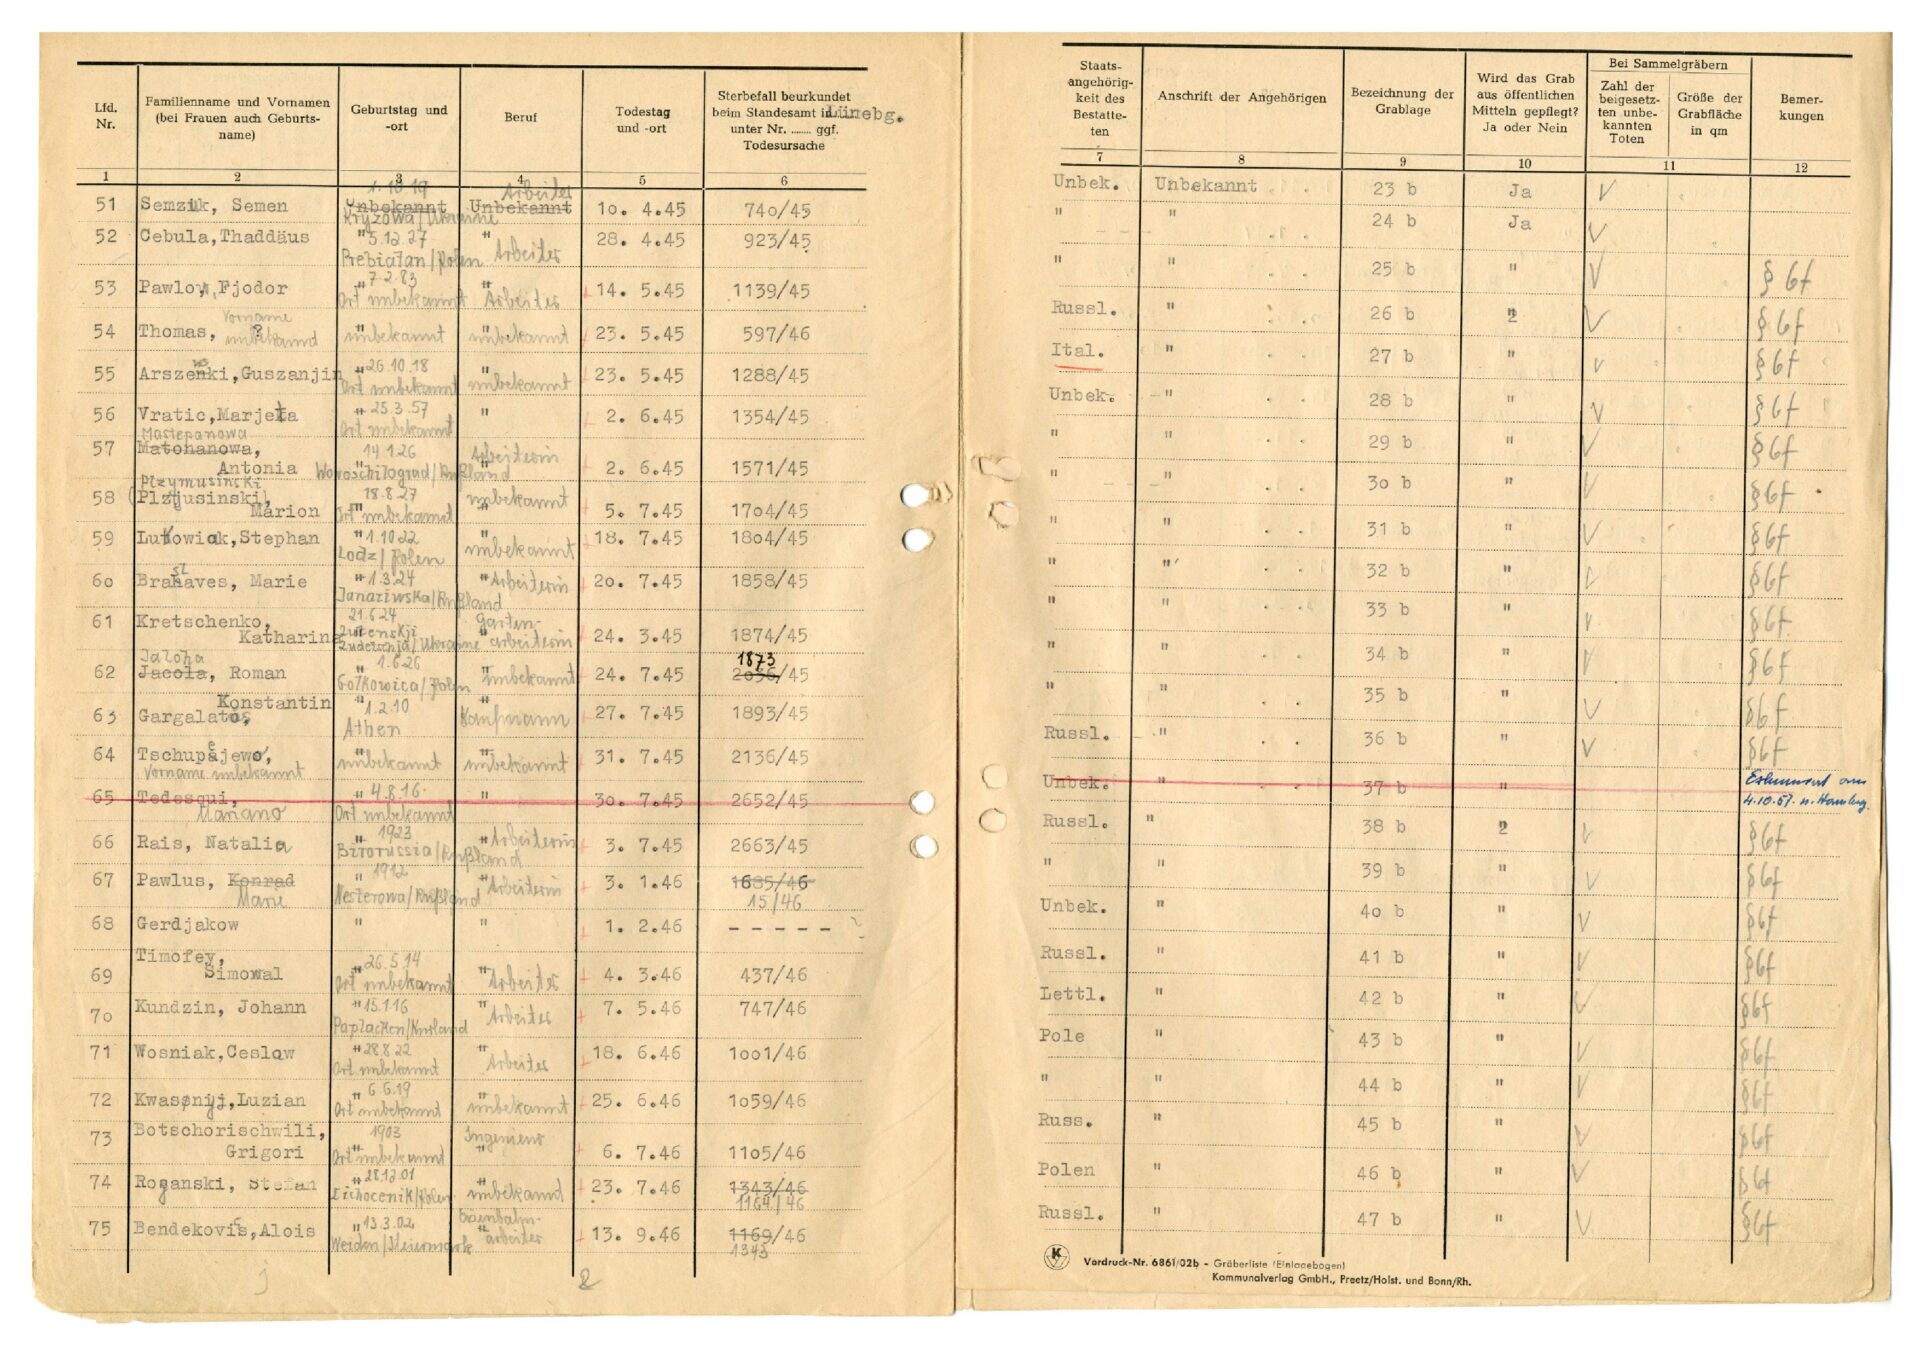 Lfd. Nr.
Familienname und Vornamen (bei Frauen auch Geburtsname)
Geburtstag und -ort
Beruf
Todestag und -ort
Sterbefall beurkundet beim Standesamt in Lünebg. unter Nr. ....... ggf. Todesursache
1 2 3 4 5 6
51 Semziuk, Semen 1.10.19 Unbekannt Kryzowa/Ukraine Arbeiter Unbekannt 10. 4.45 740/45
52 Cebula,Thaddäus " 5.12.27 / Polen " Arbeiter 28. 4.45 923/45
53 Pawlow, Fjodor " 7.2.83 Ort unbekannt " Arbeiter + 14. 5.45 1139/45
54 Thomas, ? Vorname unbekannd " unbekannt " unbekannt + 23. 5.45 597/46
55 Guszanjin " 26.10.18 Ort unbekannt " unbekannt + 23. 5.45 1288/45
56 Vratic,Marjeta " 25.3.57 Ort unbekannt " + 2. 6.45 1354/45
57 Mastepanowa Matohanowa, Antonia 14.1.26 Woroschilograd/Rußland Arbeiterin " + 2. 6.45 1571/45
58 Plzymusinski Marion 18.8.27 Ort " unbekannt unbekannt + 5. 7.45 1704/45
59 Lutowiak,Stephan " 1.10.22 Lodz/Polen " unbekannt + 18. 7.45 1804/45
60 Marie " 1.3.24 Janaziwska/Rußland " Arbeiterin + 20. 7.45 1858/45
61 Kretschenko, Katharina 21.6.24 /Ukraine Gartenarbeiterin " + 24. 3.45 1874/45
62 Jaloha Jacola, Roman " 1.6.26 Golkowica/Polen " Unbekannt + 24. 7.45 1873 2036/45
63 Konstantin Gargalatos, " 1.2.10 Athen " Kaufmann + 27. 7.45 1893/45
64 Tschupejewo, Vorname unbekannt " unbekannt " unbekannt + 31. 7.45 2136/45
65 Tedesqui, Mariano " 4.8.16 Ort unbekannt " 30. 7.45 2652/45
66 Rais, Natalia " 1923 Bzrorussia/Rußland " Arbeiterin + 3. 7.45 2663/45
67 Pawlus, Konrad Marie " 1912 Nesterowa/Rußland " Arbeiterin + 3. 1.46 1685/46 15/46
68 Gerdjakow " " + 1. 2.46 - - - - -
69 Timofey, Simowal " 26.5.14 Ort unbekannt " Arbeiter + 4. 3.46 437/46
70 Kundzin, Johann " 15.1.16 Paplacken/Kurland " Arbeiter + 7. 5.46 747/46
71 Wosniak,Ceslow " 28.8.22 Ort unbekannt " Arbeiter + 18. 6.46 1001/46
72 Luzian " 6.6.19 Ort unbekannt " unbekannt + 25. 6.46 1059/46
73 Botschorischwili, Grigori 1903 Ort " unbekannd Ingenieur " + 6. 7.46 1105/46
74 Roganski, Stefan " 28.12.01 Cichocenik/Polen " unbekannd + 23. 7.46 1343/46 1164/46
75 Alois " 13.3.02 Weiden/Steiermark Eisenbahnarbeiter " + 13. 9.46 1169/46 1343
2
Staatsangehörigkeit des Bestatteten
Anschrift der Angehörigen
Bezeichnung der Grablage
Wird das Grab aus öffentlichen Mitteln gepflegt? Ja oder Nein
Bei Sammelgräbern
Zahl der beigesetzten unbekannten Toten
Größe der Grabfläche in qm
Bemerkungen
7 8 9 10 11 12
Unbek. Unbekannt 23 b Ja
" " 24 b Ja
" " 25 b " § 6f
Russl. " 26 b " § 6f
Ital. " 27 b " § 6f
Unbek. " 28 b " § 6f
" " 29 b " § 6f
" " 30 b " § 6f
" " 31 b " § 6f
" " 32 b " § 6f
" " 33 b " § 6f
" " 34 b " § 6f
" " 35 b " § 6f
Russl. " 36 b " § 6f
Unbek. " 37 b " Exhumiert am 4.10.57 n. Hambg.
Russl. " 38 b " § 6f
" " 39 b " § 6f
Unbek. " 40 b " § 6f
Russl. " 41 b " § 6f
Lettl. " 42 b " § 6f
Pole " 43 b " § 6f
" " 44 b " § 6f
Russ. " 45 b " § 6f
Polen " 46 b " § 6f
Russl. " 47 b " § 6f
K Vordruck-Nr. 6861/02b - Gräberliste (Einlagebogen)
Kommunalverlag GmbH., Preetz/Holst. und Bonn/Rh.